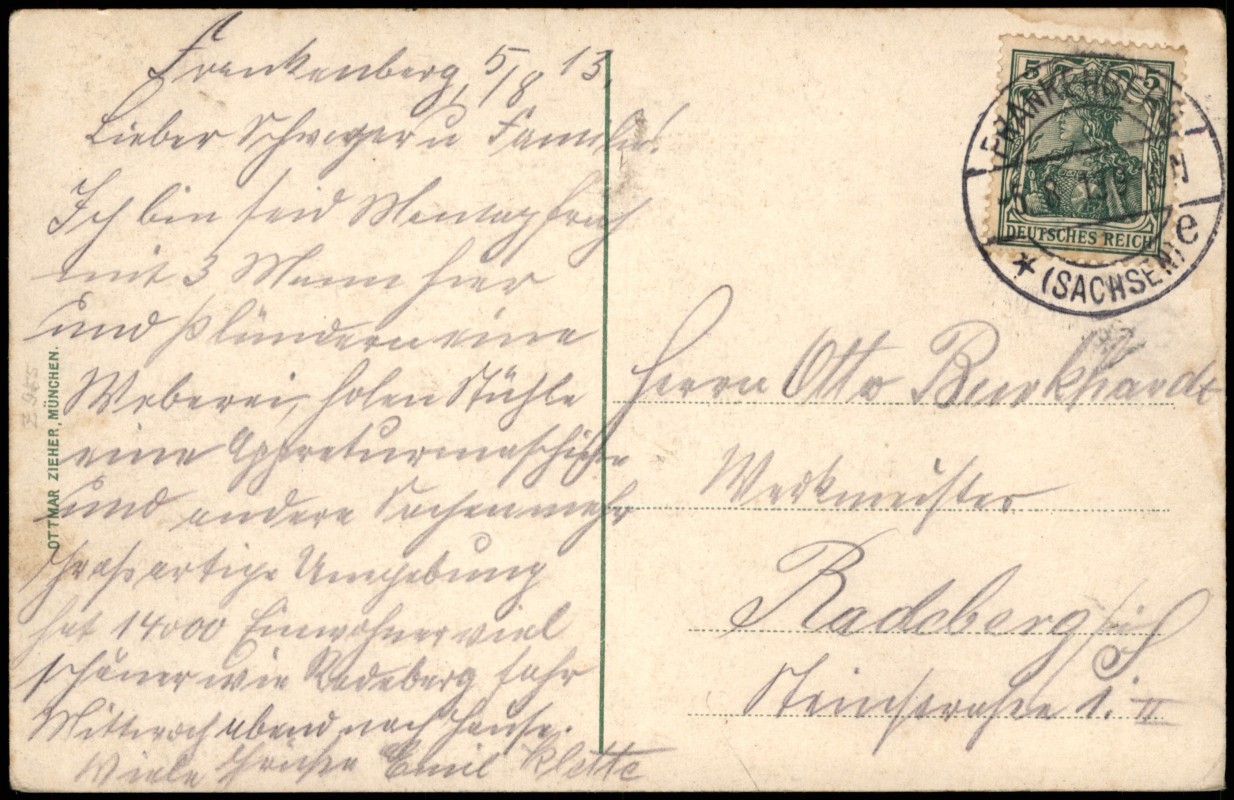 Frankenberg, 5/8 13.
Lieber Schwager u Familie!
Ich bin seid Montagfrüh
mit 3 Mann hier
und plündern eine
Weberei, holen Stühle
eine Appreturmaschine
und andere Sachen mehr
Großartige Umgebung
hat 14000 Einwohner viel
schöner wie Radeberg fahr
Mittwoch abend nach Hause.
Viele Grüße Emil Klette
OTTMAR ZIEHER, MÜNCHEN.
Z 965
5 5
DEUTSCHES REICH
FRANKENBERG
(SACHSEN) e
Herrn Otto Burkhardt
Werkmeister
Radeberg i/S
Steinstraße 1. II